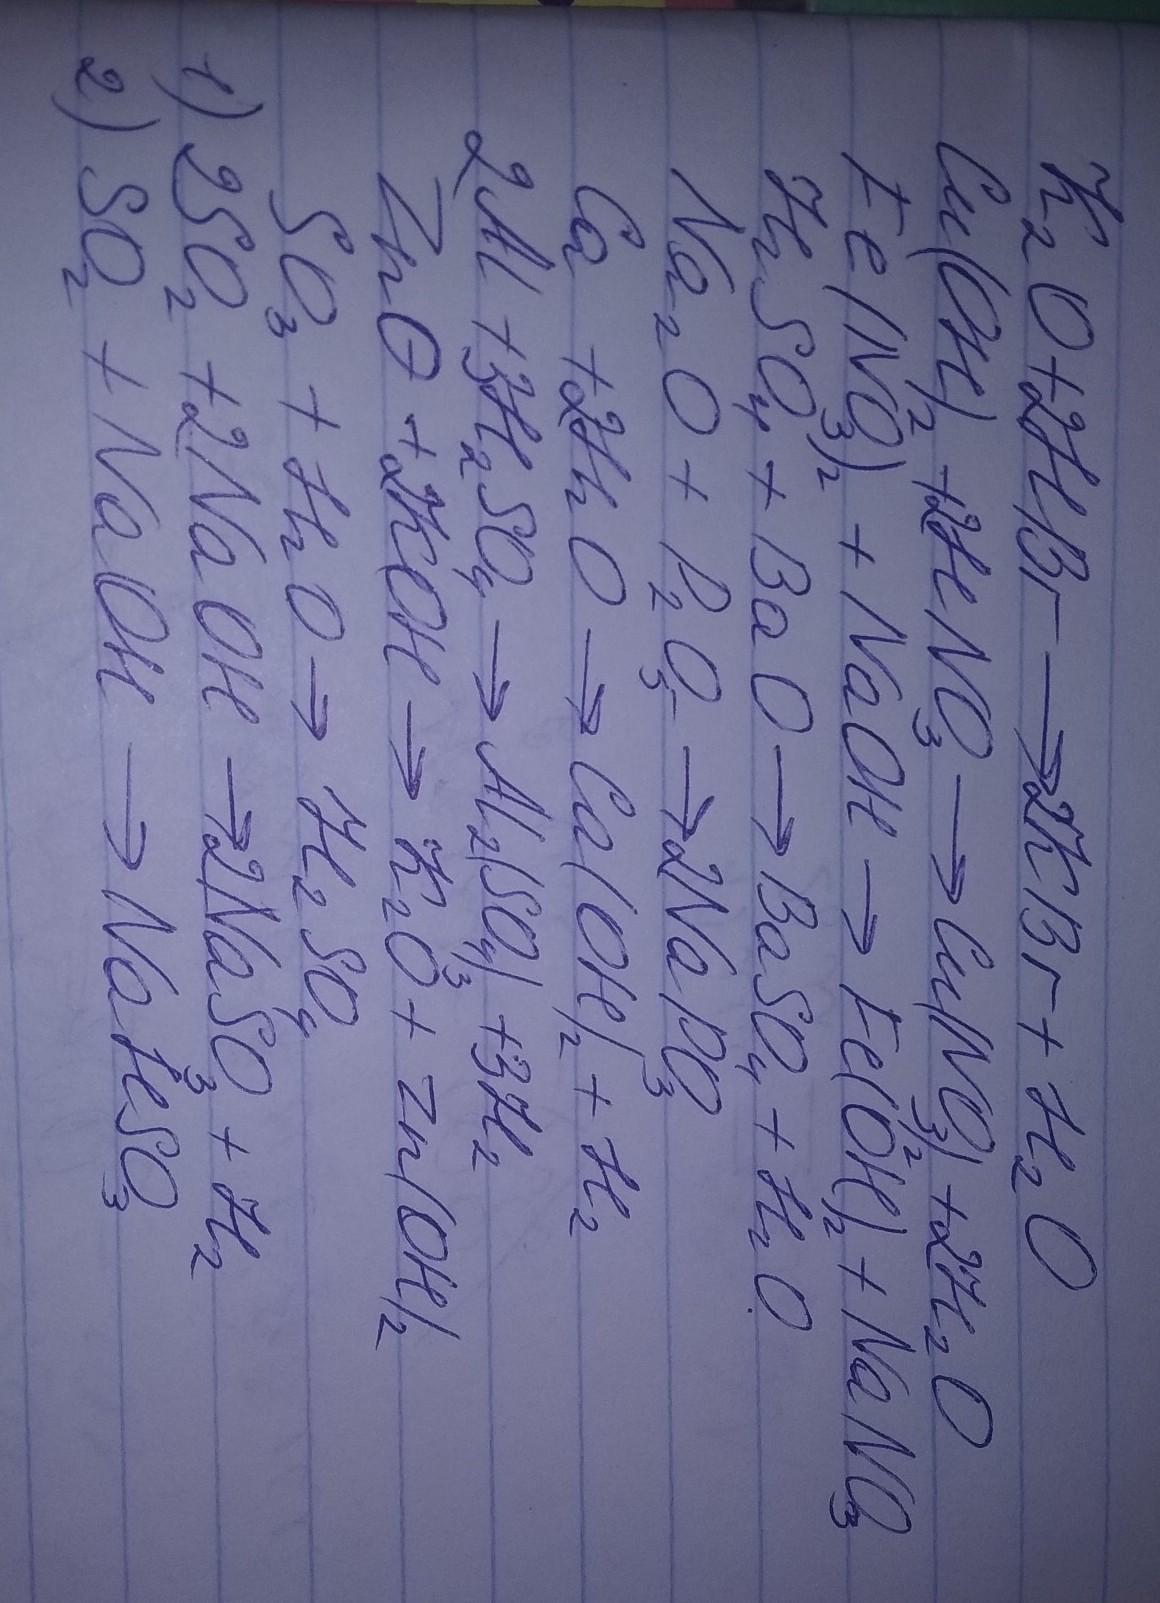 K₂O + 2HBr → 2KBr + H₂O
Cu(OH)₂ + 2HNO₃ → Cu(NO₃)₂ + 2H₂O
Fe(NO₃)₂ + NaOH → Fe(OH)₂ + NaNO₃
H₂SO₄ + BaO → BaSO₄ + H₂O
Na₂O + P₂O₅ → 2NaPO₃
Ca + 2H₂O → Ca(OH)₂ + H₂
2Al + 3H₂SO₄ → Al₂(SO₄)₃ + 3H₂
ZnO + 2KOH → K₂O + Zn(OH)₂
SO₃ + H₂O → H₂SO₄
1) 2SO₂ + 2NaOH → 2NaSO₃ + H₂
2) SO₂ + NaOH → NaHSO₃